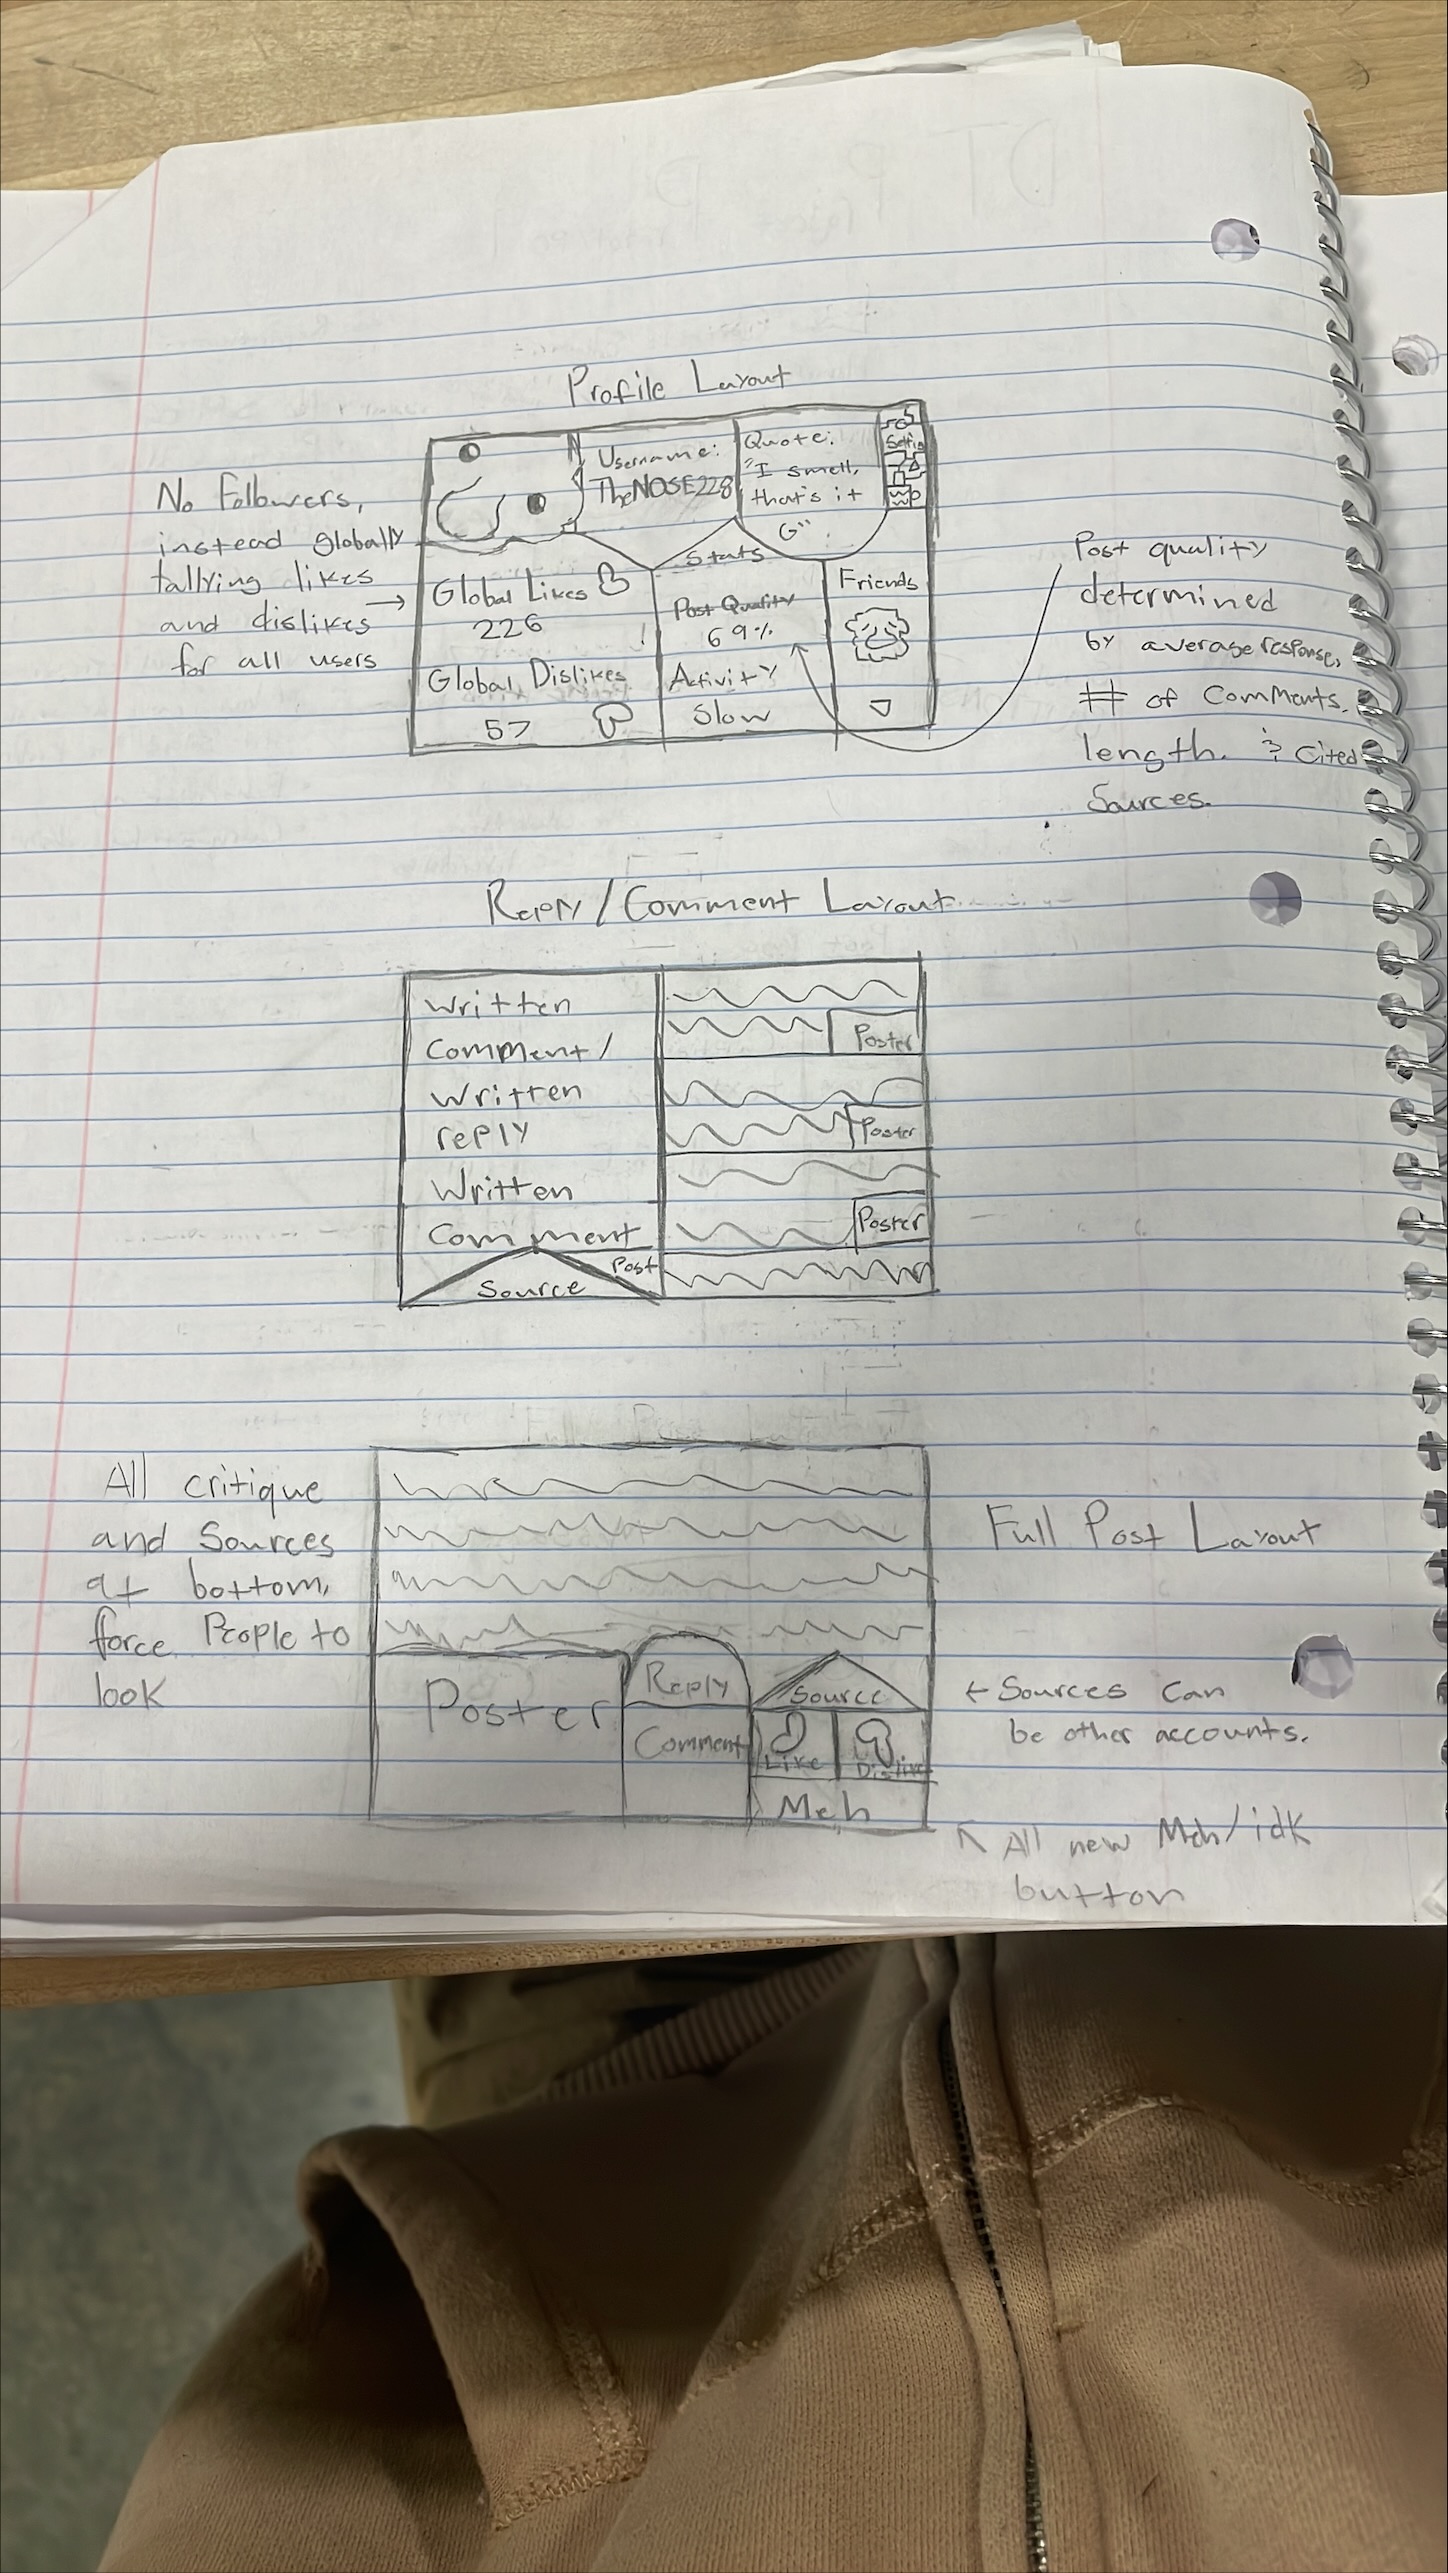 Profile Layout
No Followers,
instead globally
tallying likes
and dislikes
for all users
Username:
TheNOSE228
Quote:
"I smell,
that's it
G"
Stats
Global Likes
226
Global Dislikes
57
Post Quality
69%
Activity
Slow
Friends
Post quality
determined
by average response,
# of Comments,
length. & Cited
Sources.
Reply/Comment Layout
Written
Comment/
Written
reply
Written
Comment
Source
Post
Poster
Poster
Poster
All critique
and Sources
at bottom,
force People to
look
Full Post Layout
Poster
Reply
Comment
Source
Like
Dislike
Meh
← Sources Can
be other accounts.
All new Meh/idk
button